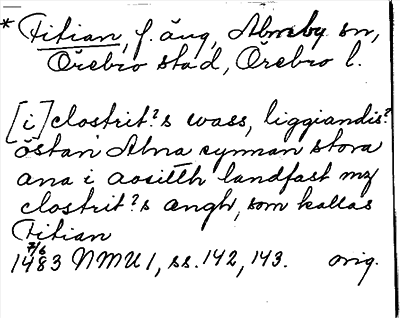 * Titian, f. äng, Almby sn,
Örebro stad, Örebro l.
[i] clostrit?s wass, liggiandis?
östan Alna synnan stora
ana i aosätth landfast mz
clostrit?s ængh, som kallas
Titian
7/6
1483 NMU 1, ss. 142, 143. orig.